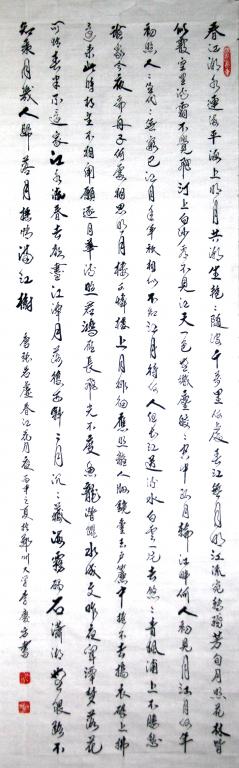 春江潮水連海平海上明月共潮生艷々隨波千萬里何處春江無月明江流宛轉繞芳甸月照花林皆
似霰空里流霜不覺飛汀上白沙看不見江天一色無纖塵皎々空中孤月輪江畔何人初見月江月何年
初照人々生代々無窮已江月年年秋相似不知江月待何人但見長江送流水白雲一片去悠々青楓浦上不勝愁
誰家今夜扁舟子何處相思明月樓可憐樓上月徘徊應照離人妝鏡臺玉戶簾中卷不去擣衣砧上拂
還來此時相望不相聞願逐月華流照君鴻雁長飛光不度魚龍潛躍水成文昨夜閑潭夢落花
可憐春半不還家江水流春去欲盡江潭月落復西斜々月沉々藏海霧碣石瀟湘無限路不
知乘月幾人歸落月搖情滿江樹
唐張若虛春江花月夜丙申之夏於鄭州大學李慶安書